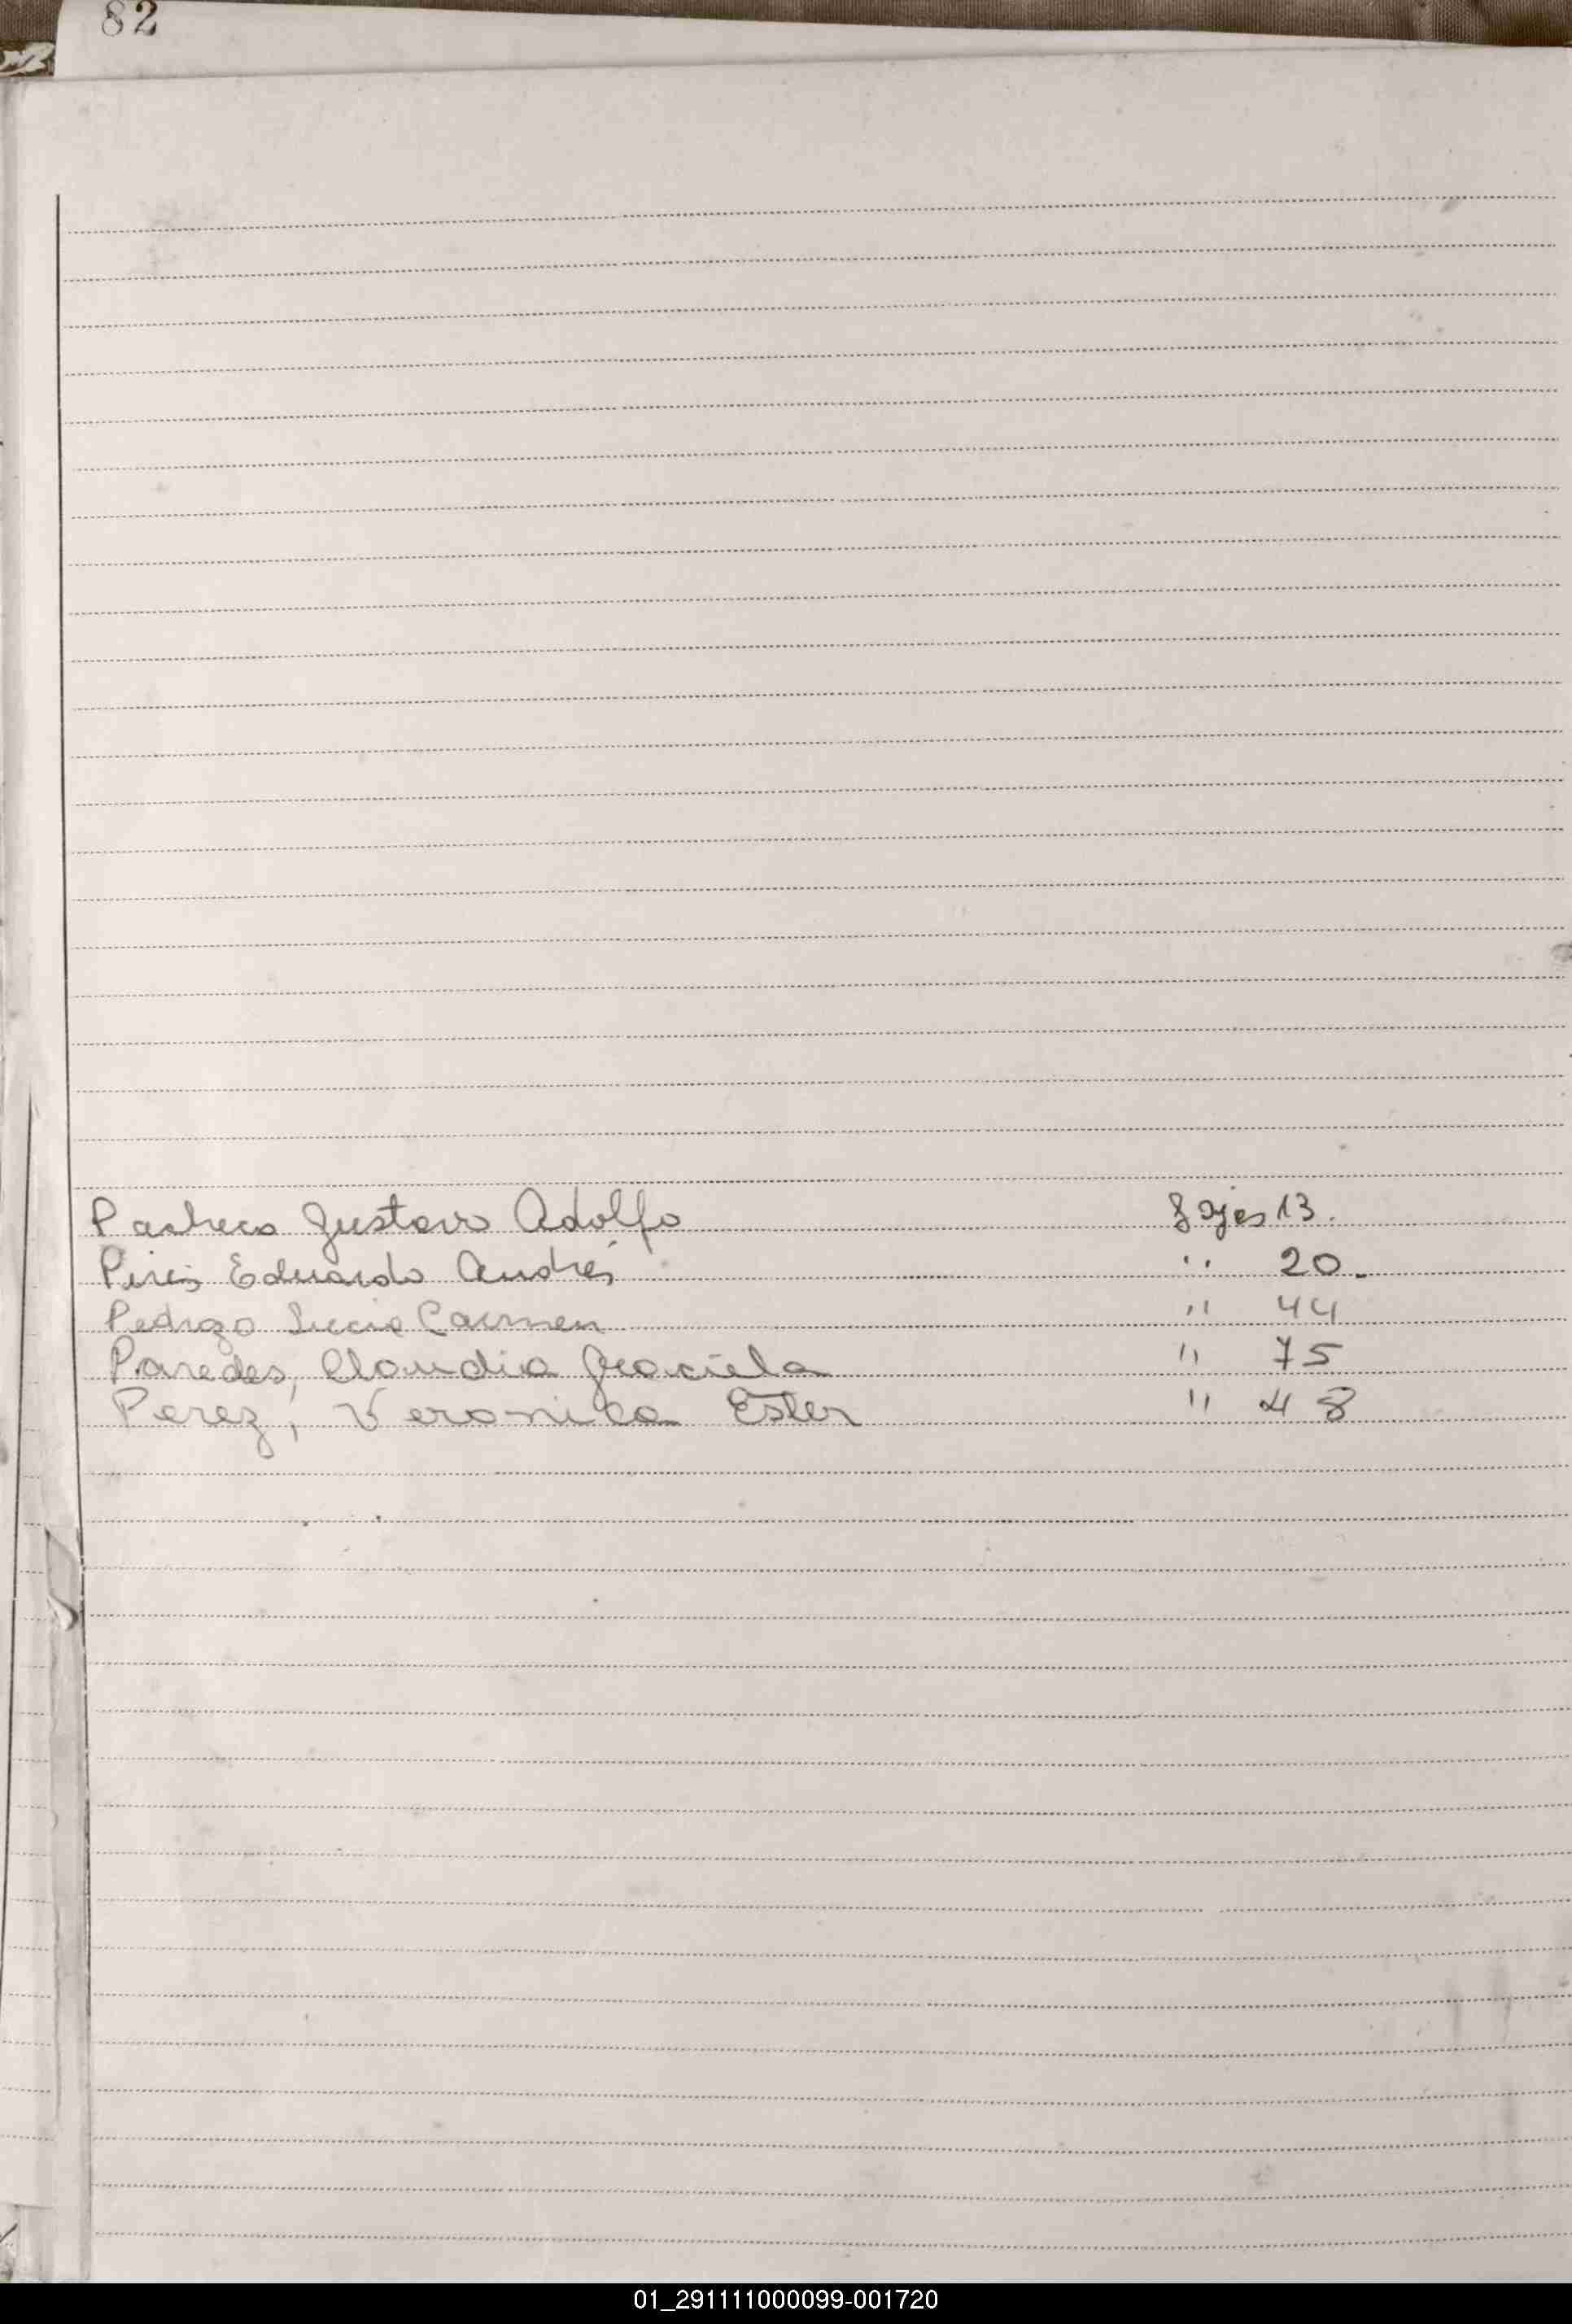 82
Pacheco Gustavo Adolfo Fojas 13.
Piris Eduardo Andrés " 20.
Pedrozo Lucia Carmen " 44
Paredes, Claudia Graciela " 75
Perez, Veronica Ester " 48
01_291111000099-001720